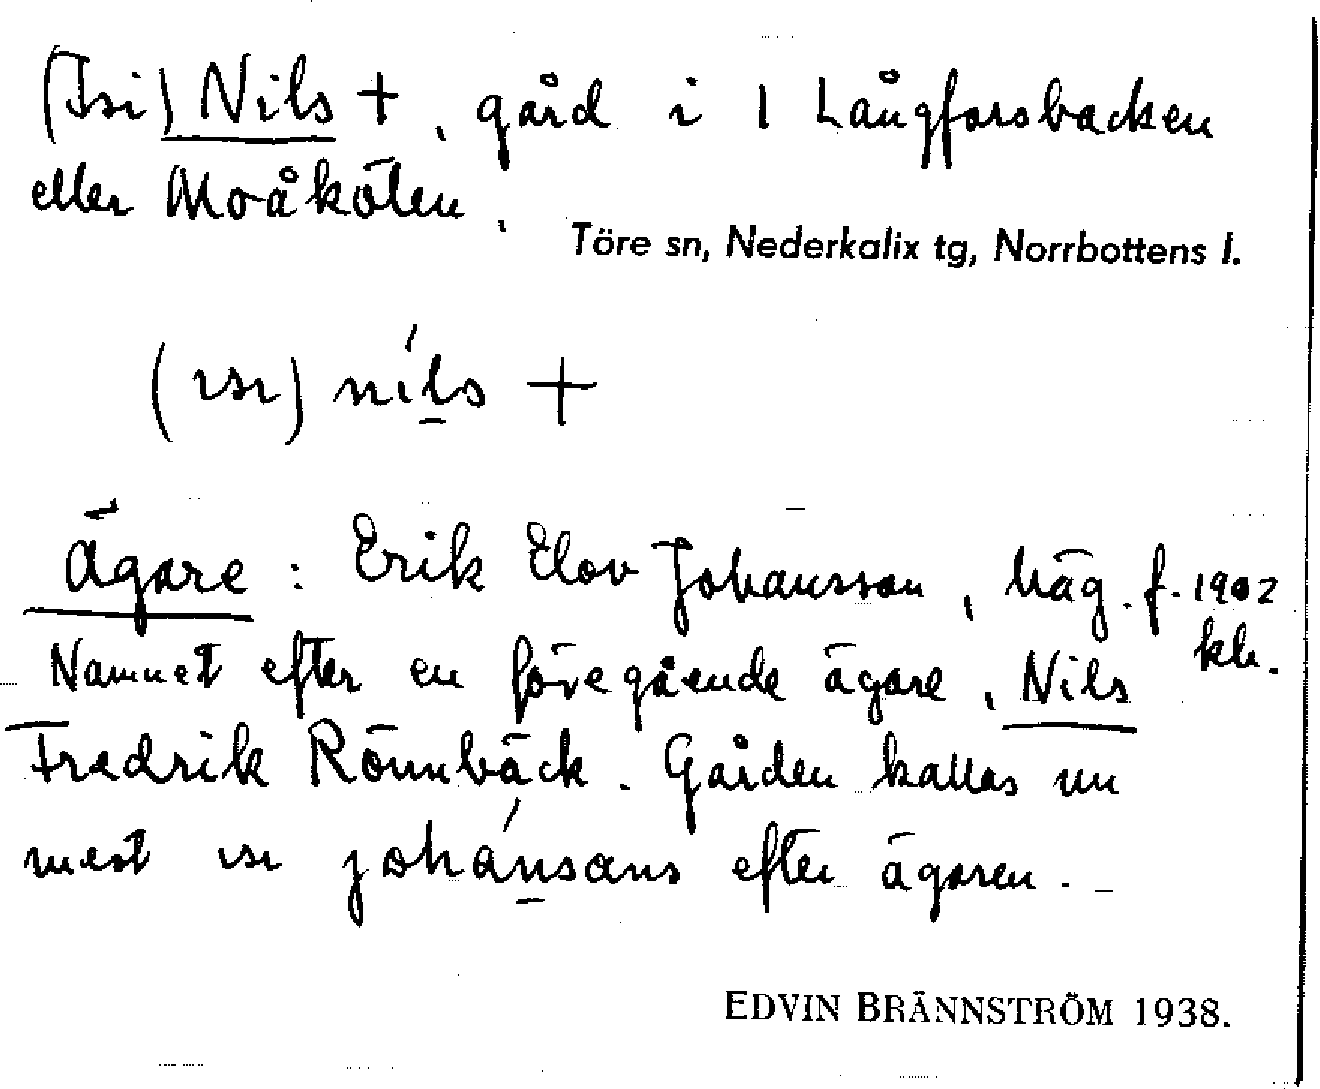 (Isi) Nils +, gård i 1 Långforsbacken
eller Moåköten.
Töre sn, Nederkalix tg, Norrbottens l.
(ısı) níls +
Ägare : Erik Elov Johansson, häg. f. 1902
kh.
Namnet efter en föregående ägare, Nils
Fredrik Rönnbäck. Gården kallas nu
mest ısı johánsans efter ägaren. –
EDVIN BRÄNNSTRÖM 1938.